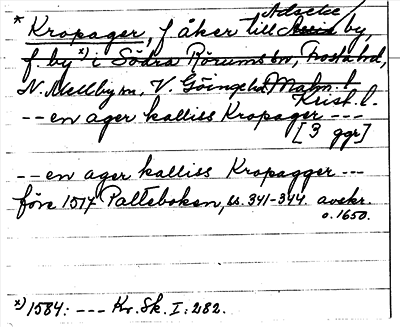 * Kropager, f. åker till Adseke by,
f. by x) i Södra Rörums sn, Frosta hd,
N. Mellby sn, V. Göinge hd Malm. l.
Krist. l.
-- en ager kalliss Kropager ---
[3 ggr]
-- en ager kalliss Kropagger ---
före 1517 Palteboken, ss. 341-344. avskr.
o. 1650.
x) 1584: --- Kr. Sk. I: 282.